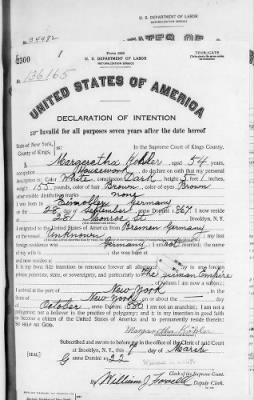 U. S. DEPARTMENT OF LABOR
34482
1
U. S. DEPARTMENT OF LABOR
NATURALIZATION SERVICE
TRIPLICATE
136165
UNITED STATES OF AMERICA
DECLARATION OF INTENTION
Invalid for all purposes seven years after the date hereof
State of New York,
County of Kings,
In the Supreme Court of Kings County.
I, Margaretha Kohler, aged 54 years,
occupation Housework, do declare on oath that my personal
description is: Color White, complexion Dark, height 5 feet 1 inches,
weight 155 pounds, color of hair Brown, color of eyes Brown
other visible distinctive marks none
Germany
on the 28 day of September, anno Domini 1867; I now reside
at 281 Monroe St
I emigrated to the United States of America from Bremen Germany
on the vessel Unknown; my last
foreign residence was Germany
It is my bona fide intention to renounce forever all allegiance and fidelity to any foreign
prince, potentate, state, or sovereignty, and particularly to The German Empire
of whom I am now a subject;
I arrived at the port of New York
State of New York, on or about the day
of October, anno Domini; I am not an anarchist; I am not a
polygamist nor a believer in the practice of polygamy; and it is my intention in good faith
to become a citizen of the United States of America and to permanently reside therein:
SO HELP ME GOD.
Margaretha Kohler
Subscribed and sworn to before me in the office of the Clerk of said Court
at Brooklyn, N.Y., this day of March
[SEAL]
anno Domini 1922
By William J. Deputy Clerk.